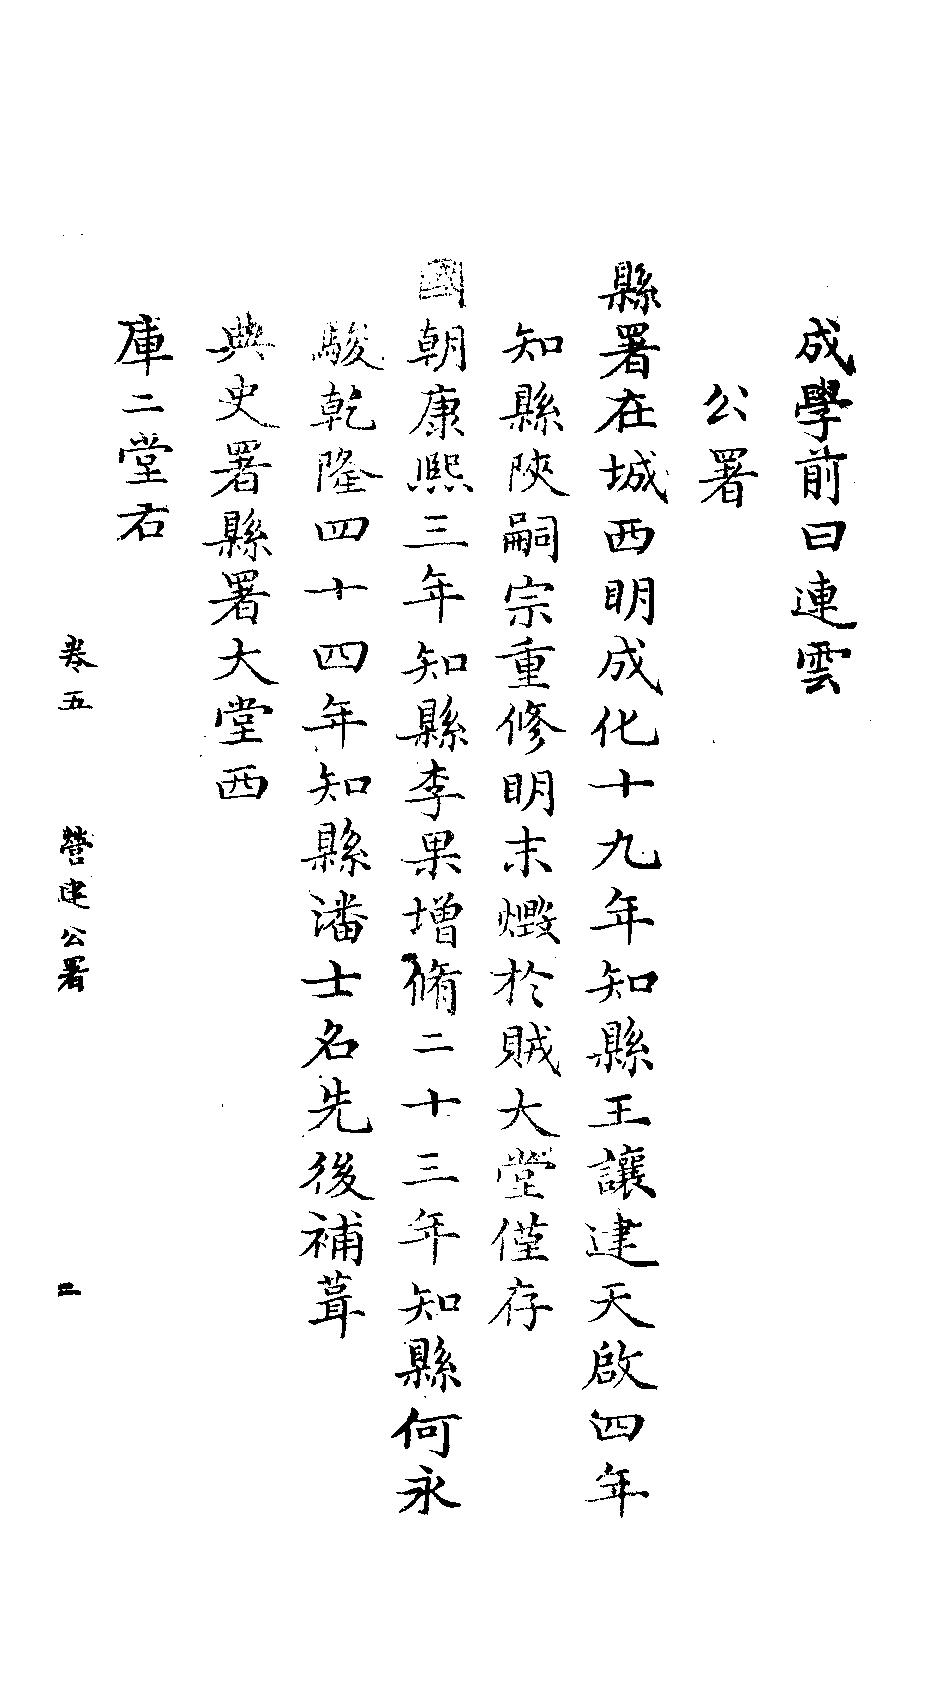 成學前曰連雲
公署
縣署在城西明成化十九年知縣王讓建天啟四年
知縣陝嗣宗重修明末燬於賊大堂僅存
國朝康熙三年知縣李果增脩二十三年知縣何永
駿乾隆四十四年知縣潘士名先後補葺
典史署縣署大堂西
庫二堂右
卷五 營建公署 二